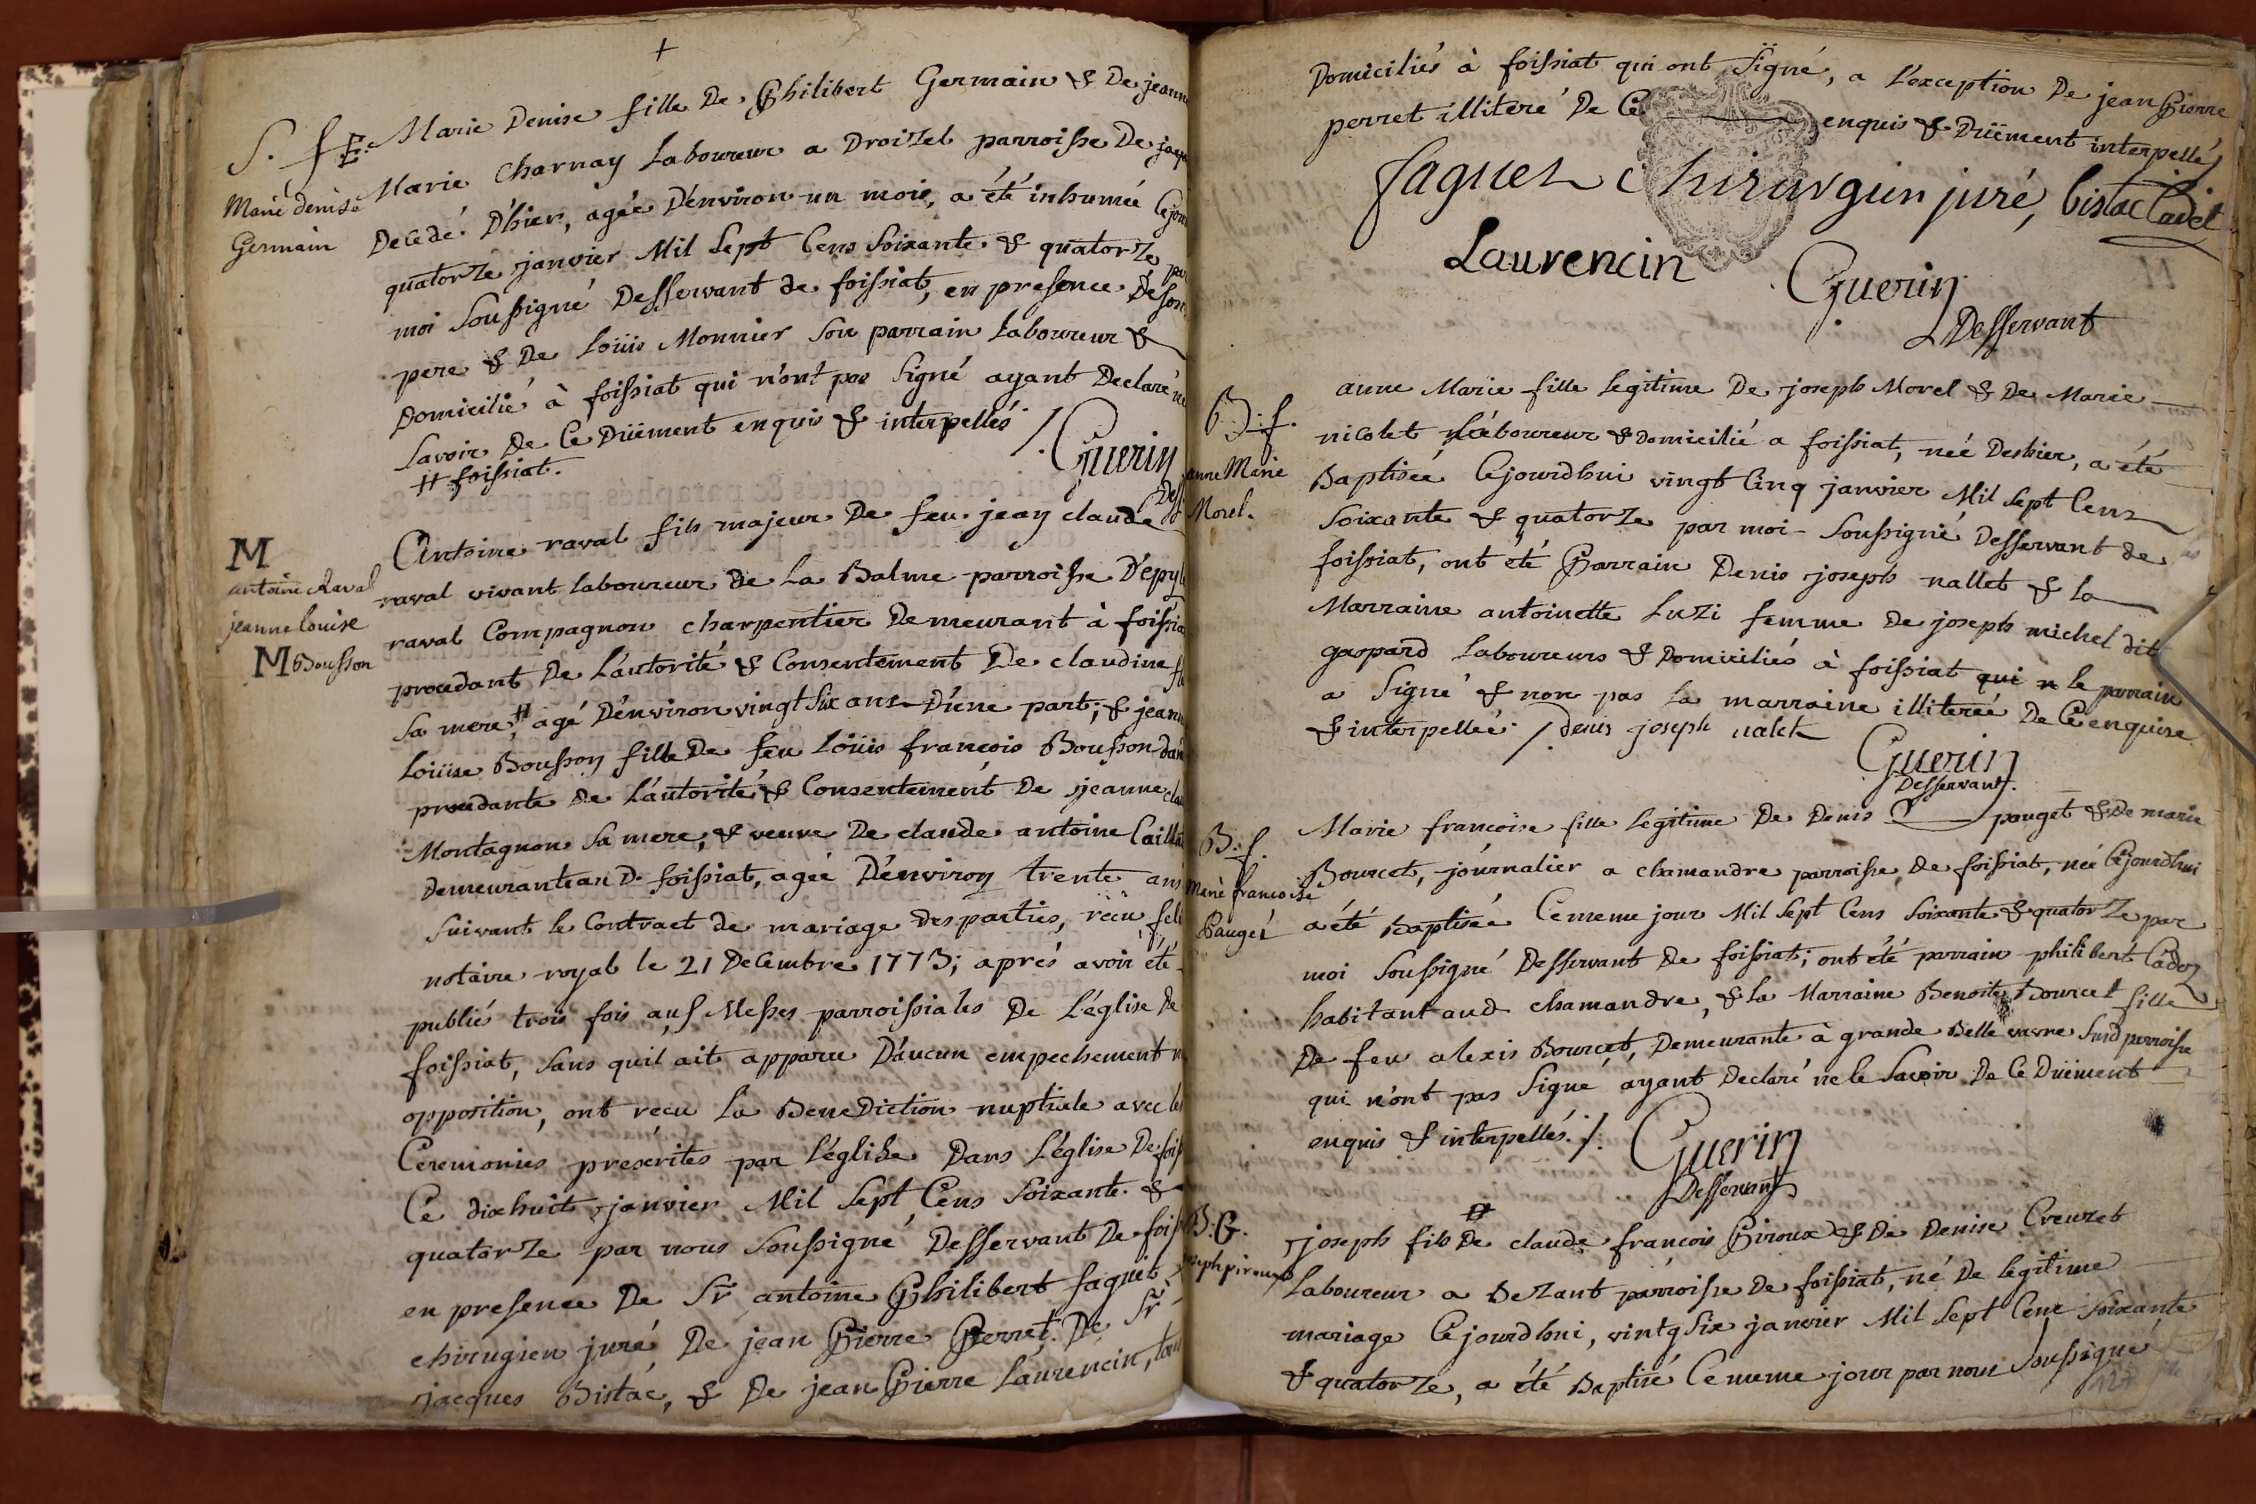 +
S. f E.
Marie denise
Germain
Marie Denise fille De Philibert Germain & De jeanne
Marie Charnay Laboureur a Droizel parroisse De
Decedé D'hier, agée D'environ un mois, a été inhumée
quatorze janvier Mil Sept Cens Soixante & quatorze par
moi Soussigné Desservant de foissiat, en presence De Son
pere & De Loüis Monnier Son parrain Laboureur &
Domicilié à foissiat qui n'ont pas Signé ayant Declaré ne
Savoir De Ce Düement enquis & interpellés ./.
Guerin
# foissiat.
M
antoine Raval
jeanne louise
M Bousson
Antoine raval fils majeur De feu jean claude
raval vivant laboureur de La Balme parroisse D'epy
raval Compagnon charpentier Demeurant à foissia
procedant De L'autorité & Consentement De claudine
Sa mere, # agé D'environ vingt Six ans D'une part; & jeanne
Loüise Bousson fille De feu Loüis francois Bousson
procedante De L'autorité & Consentement De jeanne
Montagnon Sa mere, & veuve De claude antoine
Demeurante au D. foissiat, agée D'environ trente ans
Suivant le Contract de mariage des parties, recu
notaire royal le 21 Decembre 1773; aprés avoir été
publié trois fois aux Messes parroissiales De L'église de
foissiat, Sans quil ait apparu D'aucun empechement
opposition, ont recu La Benediction nuptiale avec les
Ceremonies prescrites par L'église Dans L'église De
Ce dixhuit janvier Mil Sept Cens Soixante &
quatorze par nous Soussigné Desservant De
en presence De Sr antoine Philibert faguet
chirugien juré De jean Pierre Perret. De Sr
jacques Bistac, & De jean Pierre Laurencin,
Domiciliés à foissiat qui ont Signé, a L'exception De jean Pierre
perret illiteré De Ce enquis & Düement interpellé
faguet Chirurgien juré, bistac Cadet
Laurencin
Guerin
Desservant
B. f.
anne Marie
Morel.
anne Marie fille legitime De joseph Morel & De Marie
nicolet Laboureur & Domicilié a foissiat, née Deshier, a été
Baptisée Cejourdhui vingt Cinq janvier Mil Sept Cens
Soixante & quatorze par moi Soussigné Desservant de
foissiat, ont été Parrain Denis joseph nallet & la
Marraine antoinette Luzi femme De joseph michel dit
gaspard Laboureurs & Domiciliés à foissiat qui n le parrain
a Signé & non pas La marraine illiterée De Ce enquise
& interpellée ./. denis joseph nalet
Guerin
Desservant.
B. f.
Marie francoise
Pauget
Marie francoise fille legitime De Denis pauget & de marie
Bourcet, journalier a chamandre parroisse De foissiat, née Cejourdhui
a été Baptisée Ce meme jour Mil Sept Cens Soixante & quatorze par
moi Soussigné Desservant De foissiat; ont été parrain philibert Cadoz
habitant aud chamandre, & La Marraine Benoite Bourcet fille
De feu alexis Bourcet, Demeurante à grande Belle vavre Susd parroisse
qui n'ont pas Signé ayant Declaré ne le Savoir De Ce Düement
enquis & interpellés ./.
Guerin
Desservant
B. G.
joseph piroux
joseph fils De claude francois Piroux & De Denise Creuzet
Laboureur a Bezant parroisse De foissiat, né De legitime
mariage Cejourdhui, vintg Six janvier Mil Sept Cens Soixante
& quatorze, a été Baptisé Ce meme jour par nous Soussigné